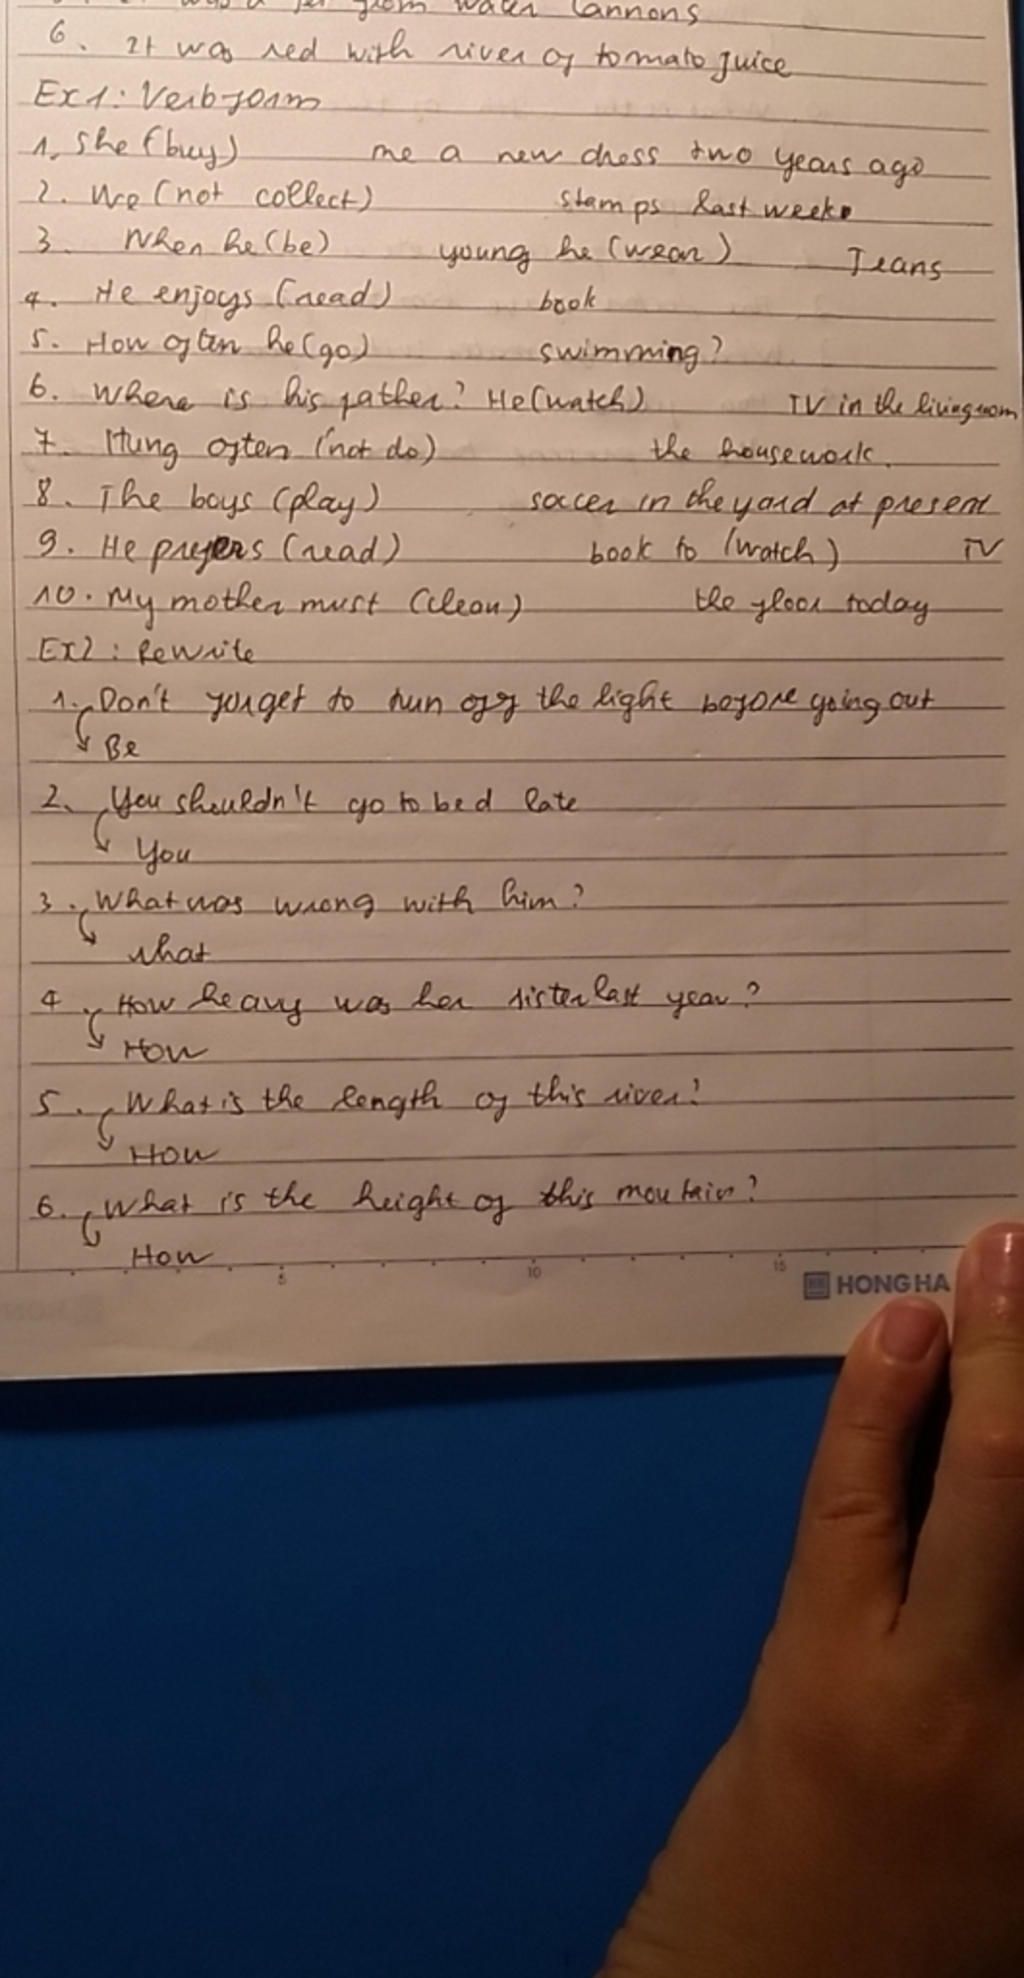 was a jet from water cannons
6. It was red with river of tomato juice
Ex1: Verb form
1. She (buy) me a new dress two years ago
2. We (not collect) stamps last week.
3. When he (be) young he (wear) Jeans
4. He enjoys (read) book
5. How often he (go) swimming?
6. Where is his father? He (watch) TV in the living room
7. Hung often (not do) the housework.
8. The boys (play) soccer in the yard at present
9. He prefers (read) book to (watch) TV
10. My mother must (clean) the floor today
Ex2: Rewrite
1. Don't forget to turn off the light before going out
Be
2. You shouldn't go to bed late
You
3. What was wrong with him?
What
4. How heavy was her sister last year?
How
5. What is the length of this river?
How
6. What is the height of this mountain?
How
5 10 15
HONG HA